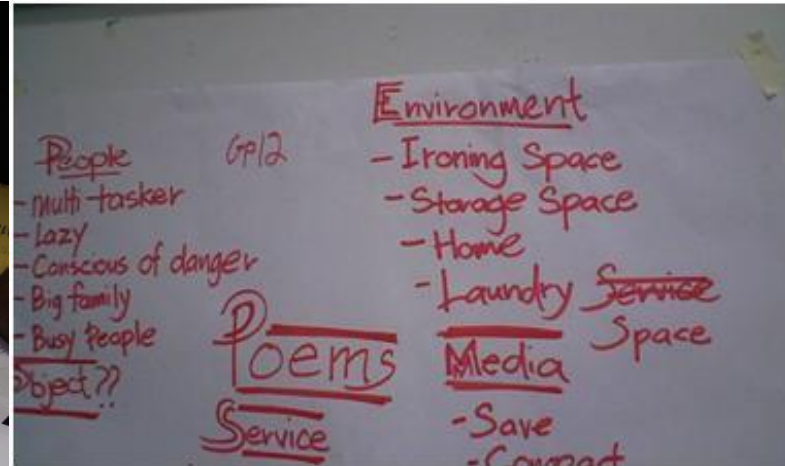 People
Gp12
- Multi-tasker
- Lazy
- Conscious of danger
- Big family
- Busy People
Object??
Poems
Service
Environment
- Ironing Space
- Storage Space
- Home
- Laundry Service
Space
Media
- Save
- Compact